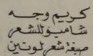 كريم وجه
شامبو للشعر
صبغة شعر لوتين